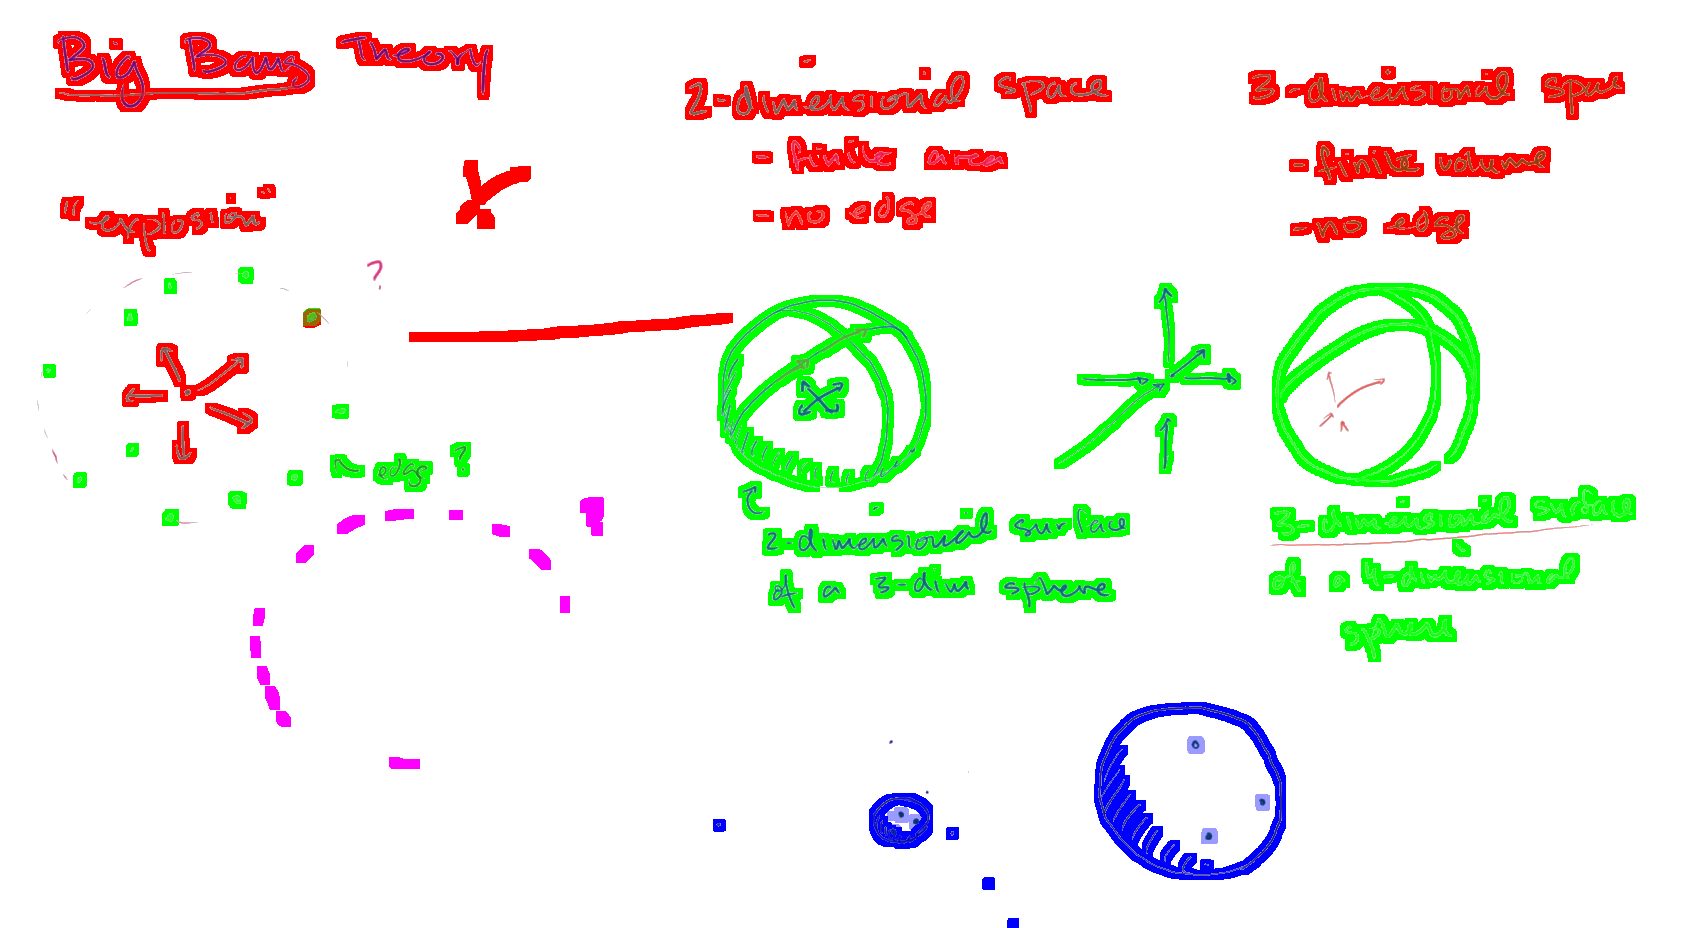 Big Bang Theory
"explosion"
?
edge?
2-dimensional space
- finite area
- no edge
2-dimensional surface
of a 3-dim sphere
3-dimensional space
- finite volume
- no edge
3-dimensional surface
of a 4-dimensional
sphere